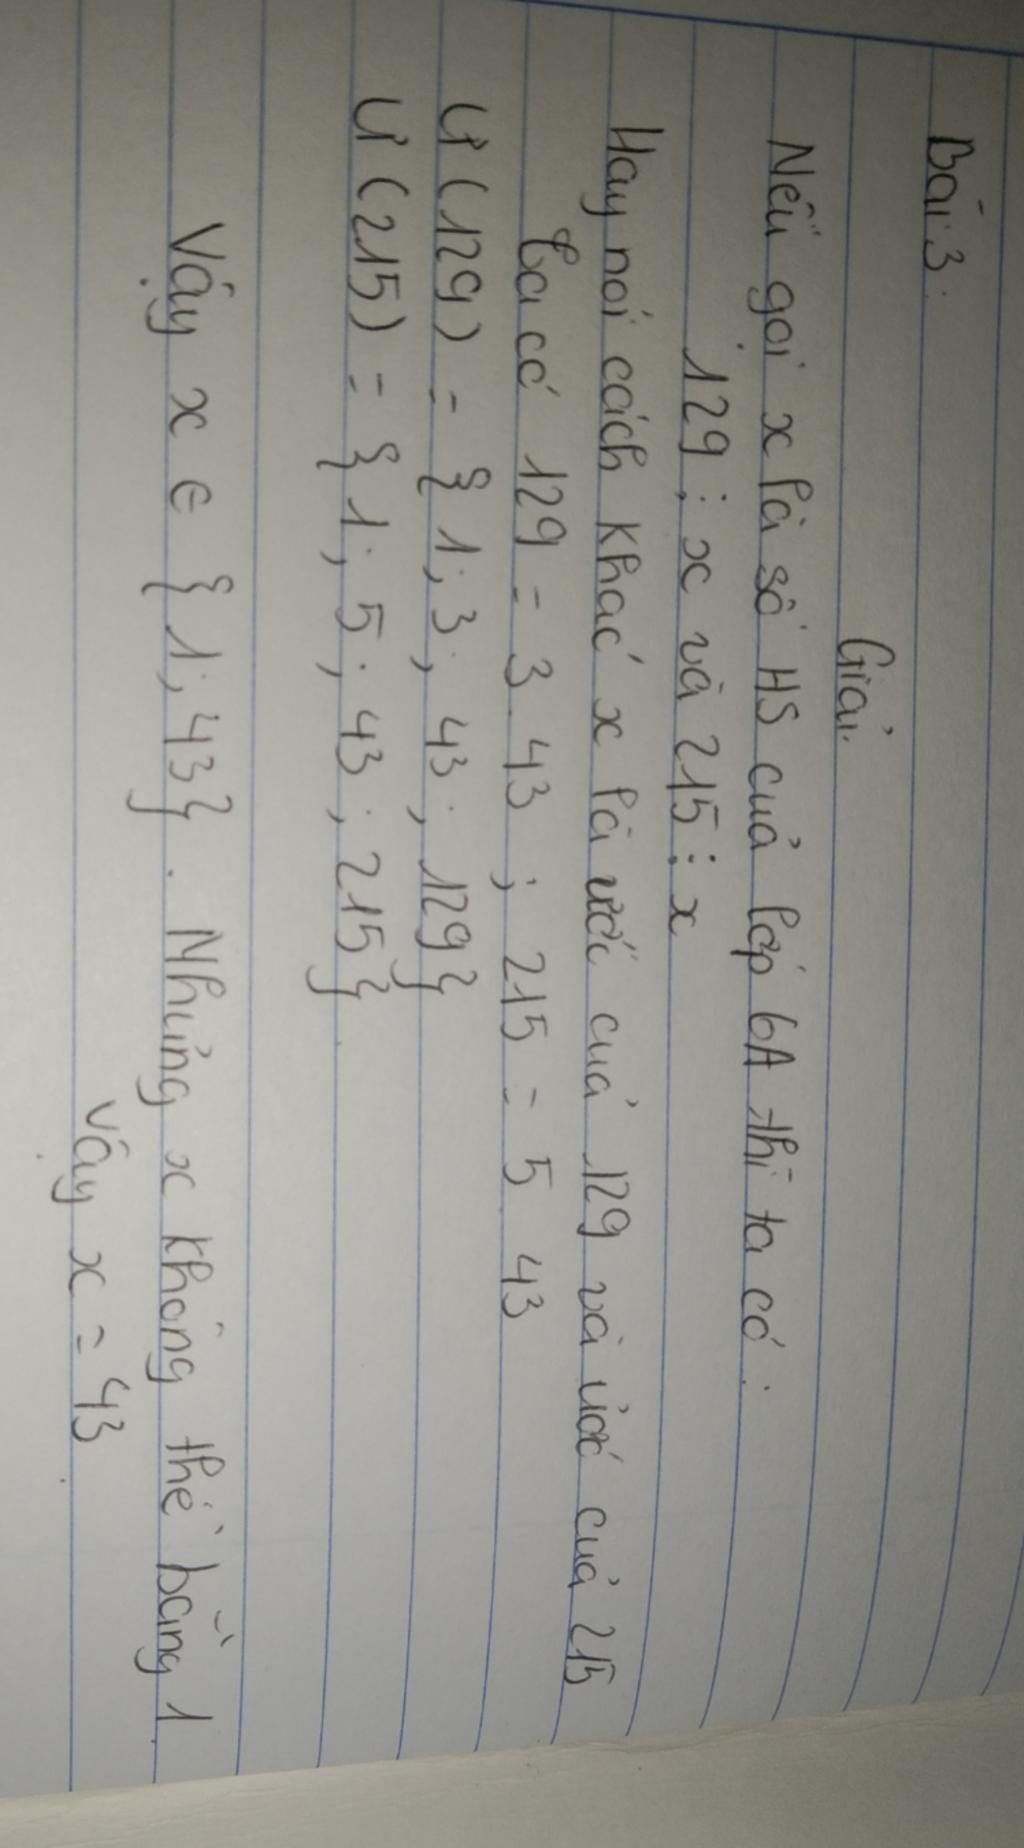 Bài 3.
Giải.
Nếu gọi x là số HS của lớp 6A thì ta có:
129 ⋮ x và 215 ⋮ x
Hay nói cách khác x là ước của 129 và ước của 215
Ta có 129 = 3.43 ; 215 = 5 43
Ư (129) = {1; 3; 43; 129}
Ư (215) = {1; 5; 43; 215}
Vậy x ∈ {1; 43}. Nhưng x không thể bằng 1.
Vậy x = 43.